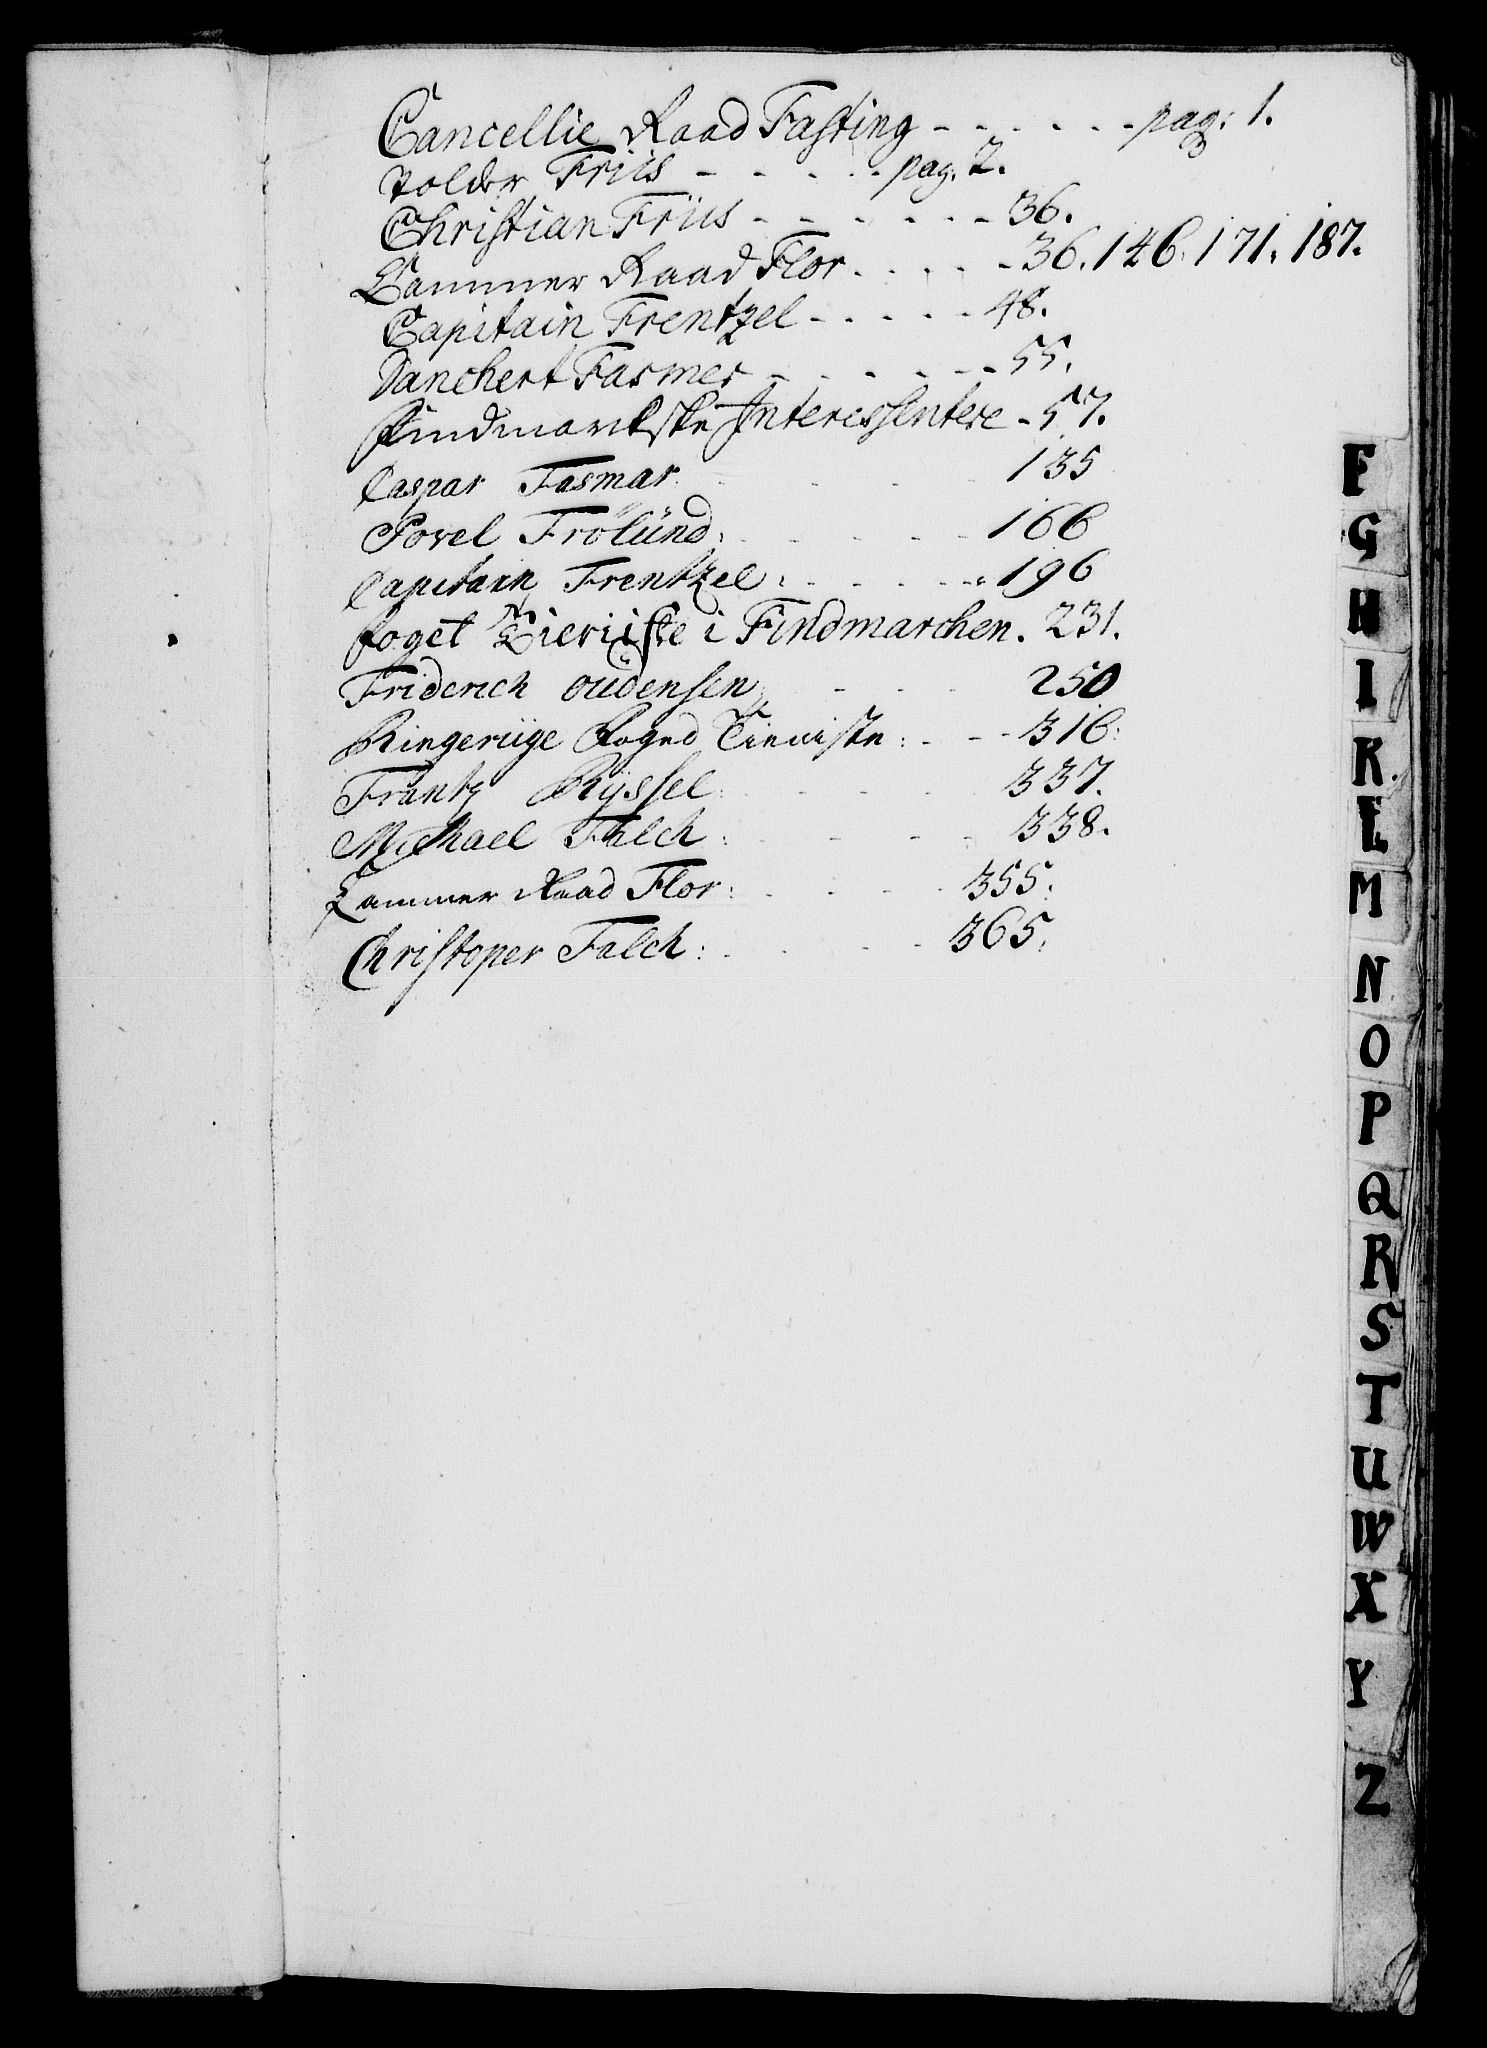 Cancellie Raad Fasting - - - - - - pag: 1.
Tolder Friis - - - - - pag. 2.
Christian Friis - - - - - - - 36.
Cammer Raad Flor - - - - - 36. 146. 171. 187.
Capitain Frentzel - - - - - 48.
Danchert Fasmer - - - - - - - 55.
Findmarkske Interessentere - 57.
Caspar Fasmar - - - - 135
Povel Frölünd: - - - - - 166
Capitain Frentzel: - - - - - 196
foget i Findmarchen. 231.
Friderich Oüdensen - - - 250
Ringeriige Foged - - - 316:
Frantz Rÿssel: - - - - 337.
Michael Falch: - - - - 338.
Cammer Raad Flor: - - - - 355:
Christoper Falch: - - - - 365:
F
G
H
I
K
L
M
N
O
P
Q
R
S
T
U
W
X
Y
Z